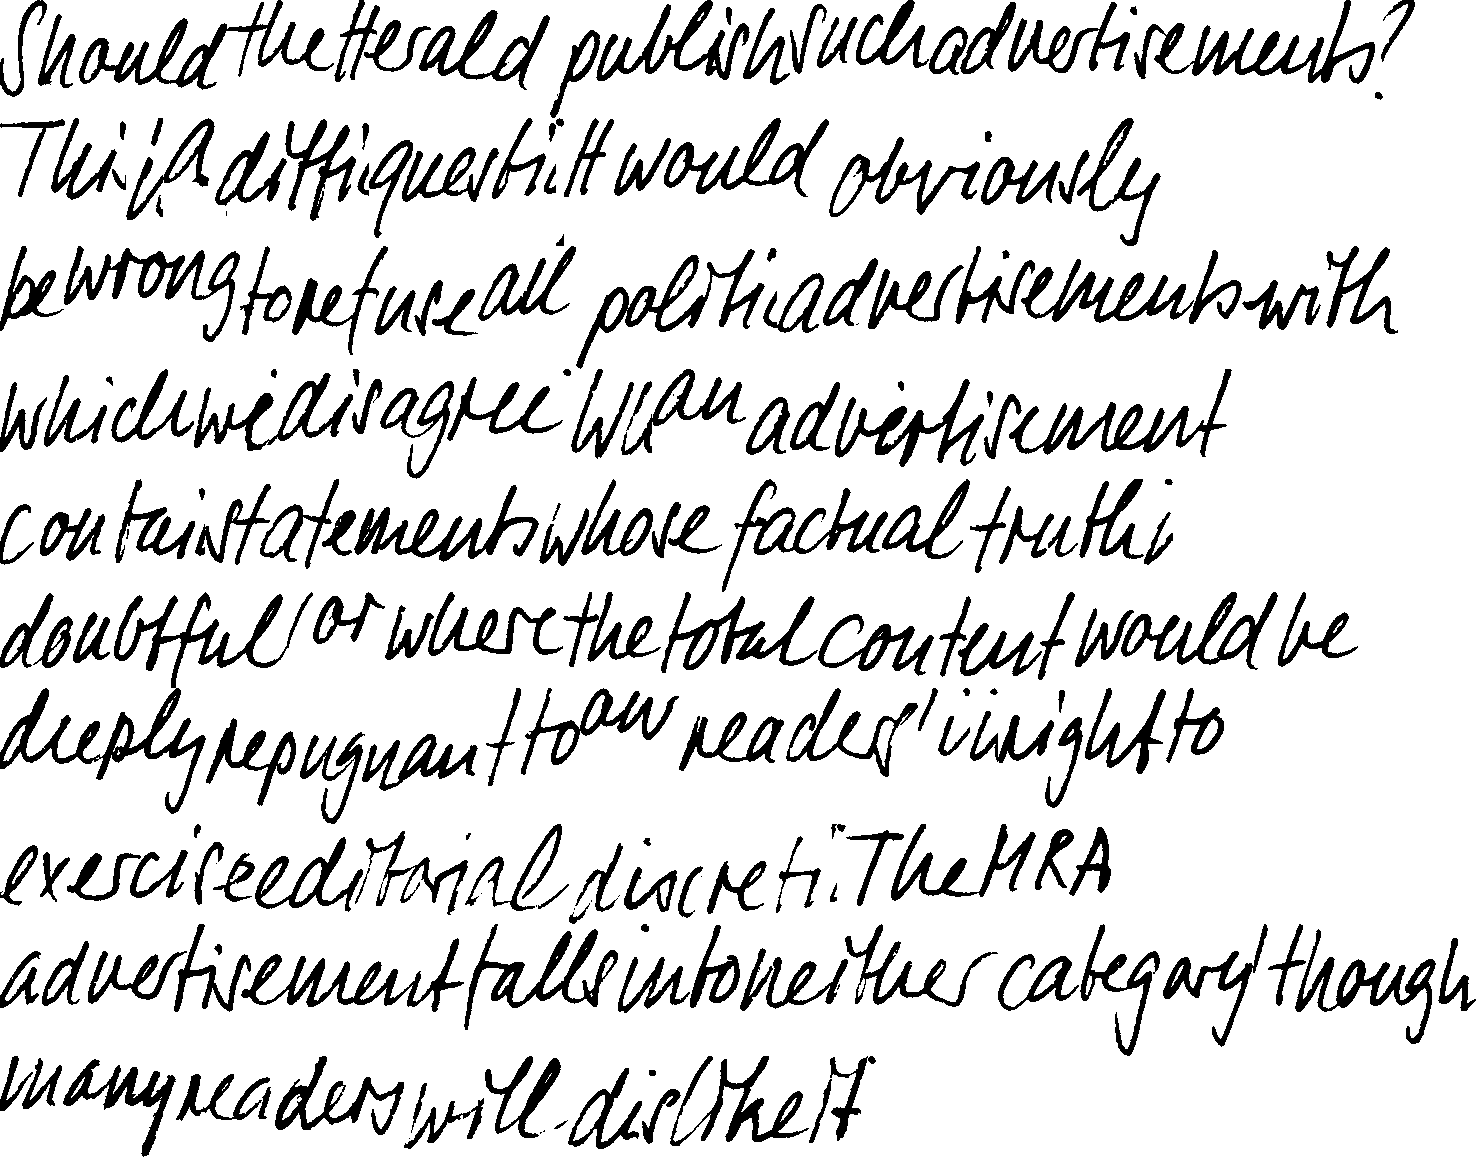 Should the Herald publish such advertisements?
This is a difficult question. It would obviously
be wrong to refuse all political advertisements with
which we disagree. When an advertisement
contains statements whose factual truth is
doubtful, or where the total content would be
deeply repugnant to our readers, it is right to
exercise editorial discretion. The MRA
advertisement falls into neither category, though
many readers will dislike it